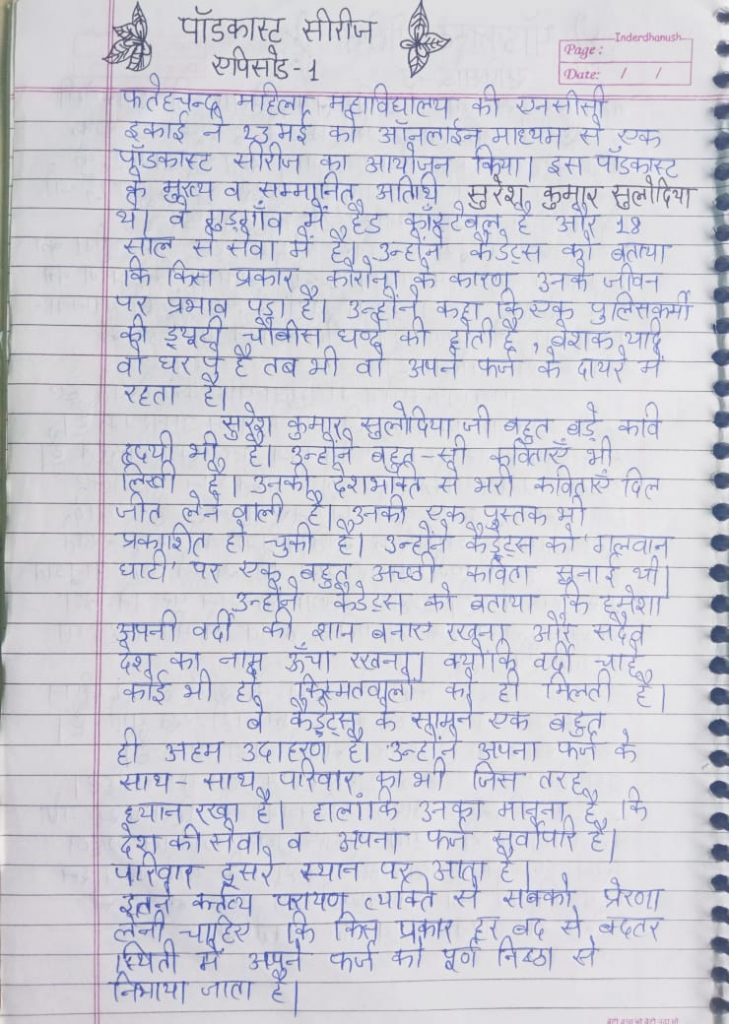 पॉडकास्ट सीरीज
एपिसोड - 1
Inderdhanush
Page :
Date: / /
फतेहचन्द महिला महाविद्यालय की एनसीसी
इकाई ने 23 मई को ऑनलाईन माध्यम से एक
पॉडकास्ट सीरीज का आयोजन किया। इस पॉडकास्ट
के मुख्य व सम्मानित अतिथि सुरेश कुमार सुलोदिया
थे। वे गुड़गाँव में हैड काँस्टेबल है और 18
साल से सेवा में है। उन्होंने कैडेट्स को बताया
कि किस प्रकार कोरोना के कारण उनके जीवन
पर प्रभाव पड़ा है। उन्होंने कहा कि एक पुलिसकर्मी
की ड्यूटी चौबीस घण्टे की होती है, बेशक यदि
वो घर पे है तब भी वो अपने फर्ज के दायरे में
रहता है।
सुरेश कुमार सुलोदिया जी बहुत बड़े कवि
हृदयी भी है। उन्होंने बहुत-सी कविताएँ भी
लिखी है। उनकी देशभक्ति से भरी कविताएँ दिल
जीत लेने वाली है। उनकी एक पुस्तक भी
प्रकाशित हो चुकी है। उन्होंने कैडेट्स को 'गलवान
घाटी' पर एक बहुत अच्छी कविता सुनाई थी।
उन्होंने कैडेट्स को बताया कि हमेशा
अपनी वर्दी की शान बनाए रखना और सदैव
देश का नाम ऊँचा रखना। क्योंकि वर्दी चाहे
कोई भी हो किस्मतवालों को ही मिलती है।
वे कैडेट्स के सामने एक बहुत
ही अहम उदाहरण है। उन्होंने अपना फर्ज के
साथ-साथ परिवार का भी जिस तरह
ध्यान रखा है। हालांकि उनका मानना है कि
देश की सेवा व अपना फर्ज सर्वोपरि है।
परिवार दूसरे स्थान पर आता है।
इतने कर्तव्य परायण व्यक्ति से सबको प्रेरणा
लेनी चाहिए कि किस प्रकार हर बद से बदतर
स्थिती में अपने फर्ज को पूर्ण निष्ठा से
निभाया जाता है।